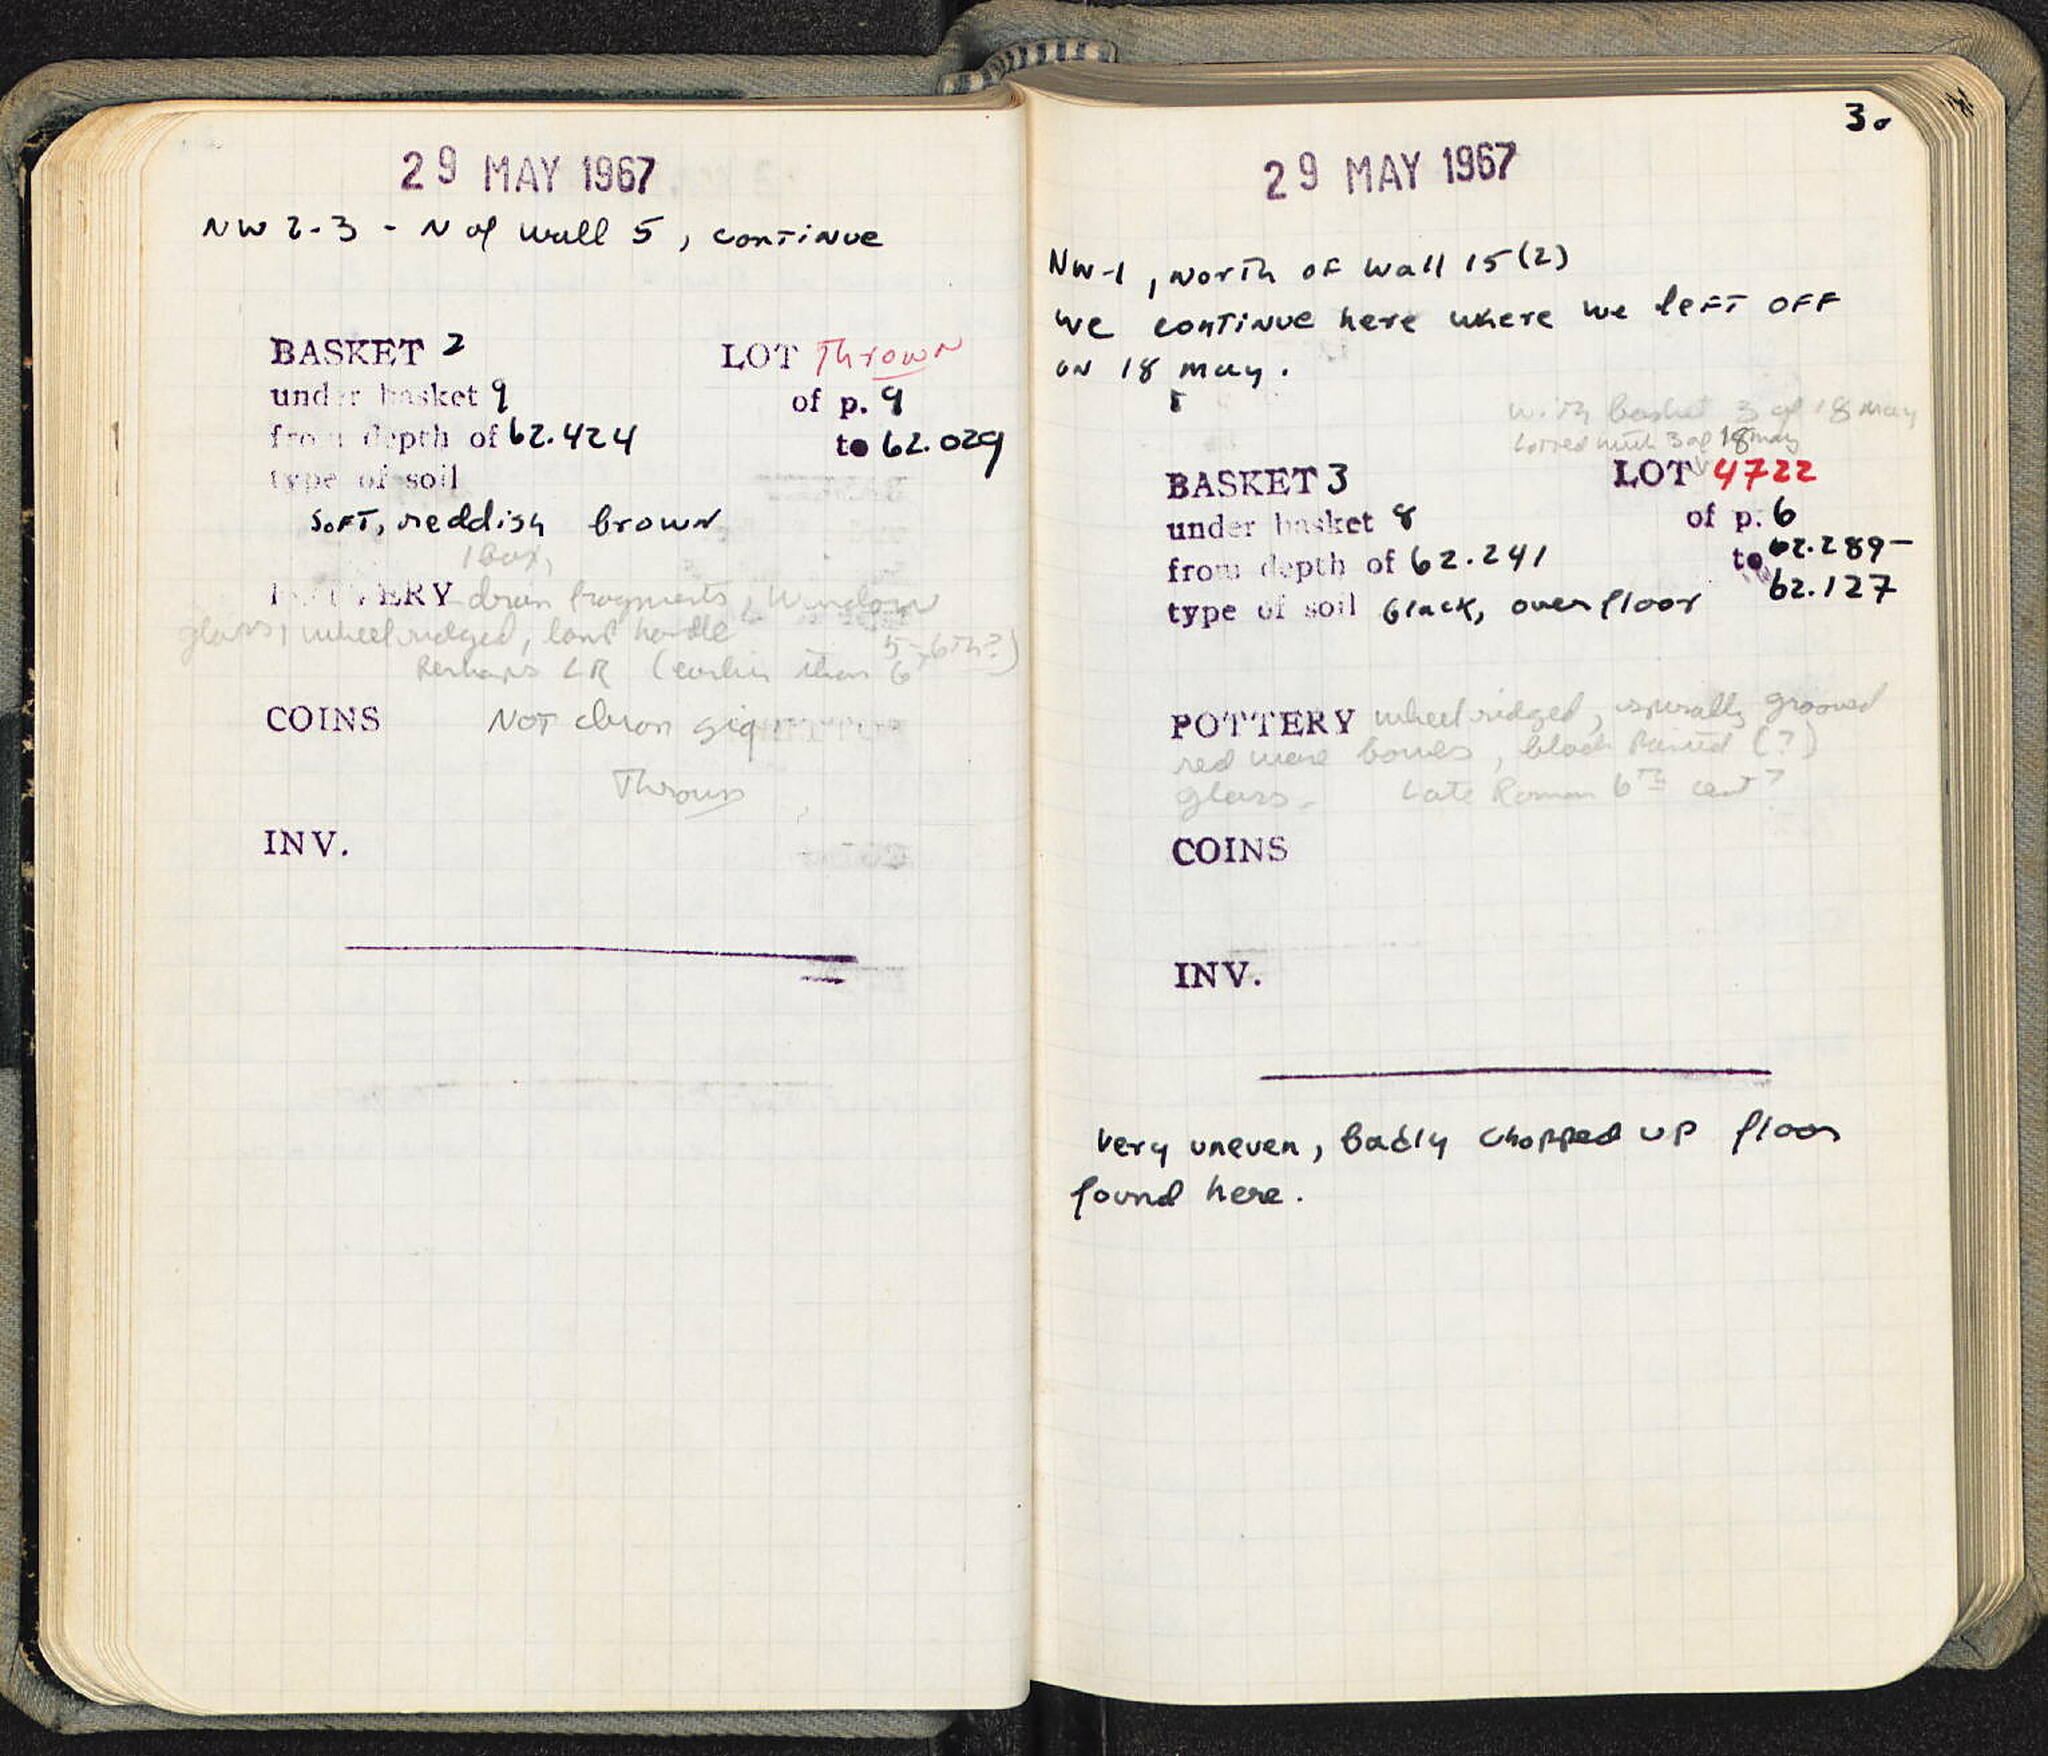 29 MAY 1967
NW 2-3 - N of wall 5, continue
BASKET 2 LOT Thrown
under basket 9 of p. 9
from depth of 62.424 to 62.029
type of soil
SOFT, reddish brown
1 box,
POTTERY fragments, Window
glass, wheel ridged, handle
5-6th?)
Perhaps LR (earlier than 6
COINS NOT chron sig
Thrown
INV.
30
29 MAY 1967
NW-1, North of Wall 15(2)
we continue here where we left off
on 18 May.
with basket 3 of 18 May
Lotted with 3 of 18 May
BASKET 3 LOT 4722
under basket 8 of p. 6
from depth of 62.241 to 62.289-
62.127
type of soil black, over floor
POTTERY wheel ridged, spirally grooved
red ware bowls, black painted (?)
glass - Late Roman 6th cent?
COINS
INV.
Very uneven, badly chopped up floor
found here.